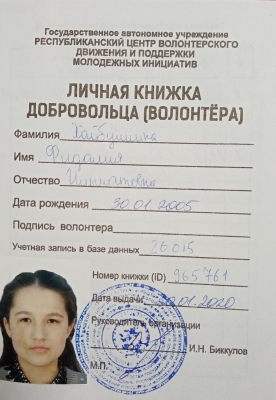 Государственное автономное учреждение
РЕСПУБЛИКАНСКИЙ ЦЕНТР ВОЛОНТЕРСКОГО
ДВИЖЕНИЯ И ПОДДЕРЖКИ
МОЛОДЕЖНЫХ ИНИЦИАТИВ
ЛИЧНАЯ КНИЖКА
ДОБРОВОЛЬЦА (ВОЛОНТЁРА)
Фамилия
Имя
Отчество
Дата рождения 30.01.2005
Подпись волонтера
Учетная запись в базе данных 26015
Номер книжки (ID) 965761
Дата выдачи .01.2020
Руководитель организации
И.Н. Биккулов
М.П.